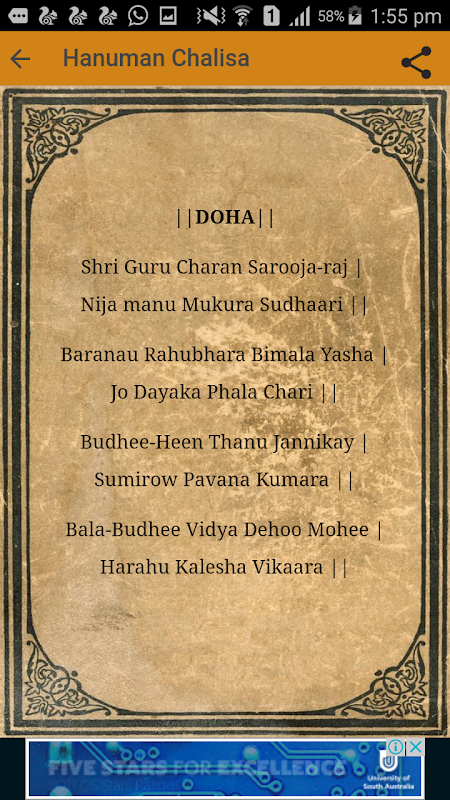 58% 1:55 pm
1
Hanuman Chalisa
||DOHA||
Shri Guru Charan Sarooja-raj |
Nija manu Mukura Sudhaari ||
Baranau Rahubhara Bimala Yasha |
Jo Dayaka Phala Chari ||
Budhee-Heen Thanu Jannikay |
Sumirow Pavana Kumara ||
Bala-Budhee Vidya Dehoo Mohee |
Harahu Kalesha Vikaara ||
FIVE STARS FOR EXCELLENCE
University of
South Australia